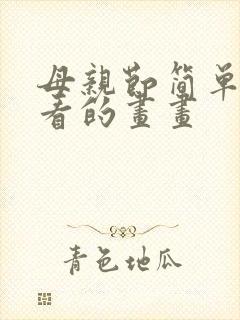 母親節簡單
看的畫畫
青色地瓜